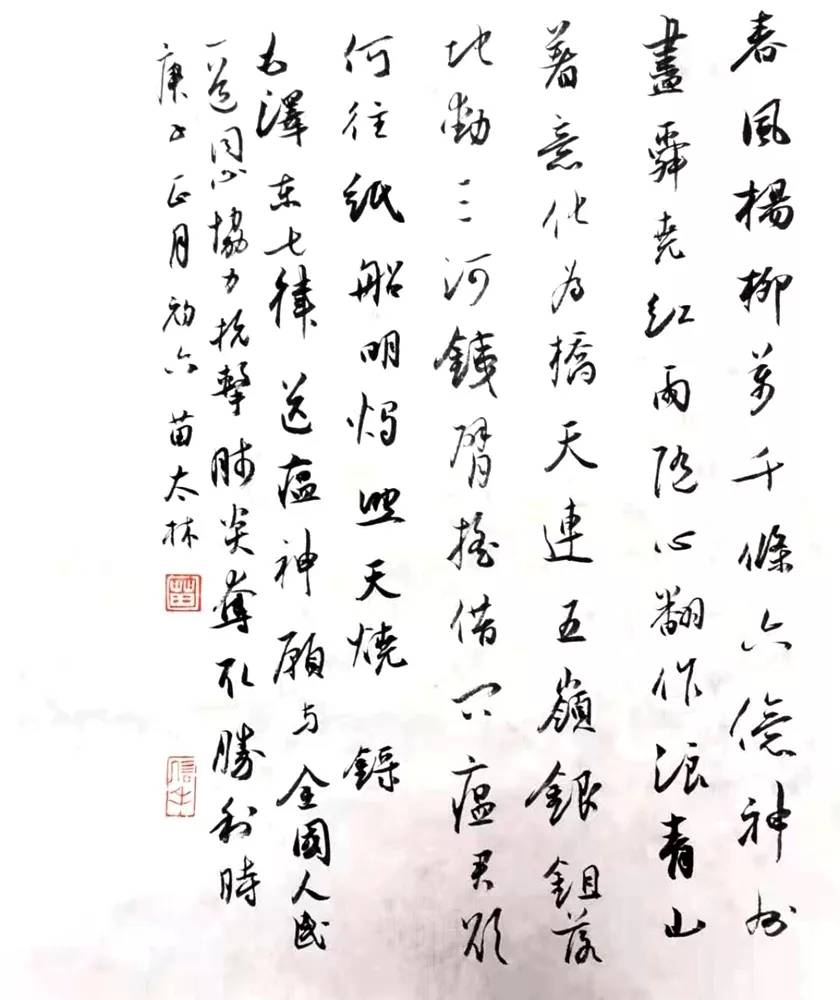 春風楊柳萬千條六億神州
盡舜堯紅雨隨心翻作浪青山
著意化為橋天連五嶺銀鉏落
地動三河鐵臂搖借问瘟君欲
何往紙船明燭照天燒 鐸
毛澤东七律送瘟神願与全國人民
一道同心協力抗擊肺炎奪取勝利時
庚子正月初六苗太林
苗
信生